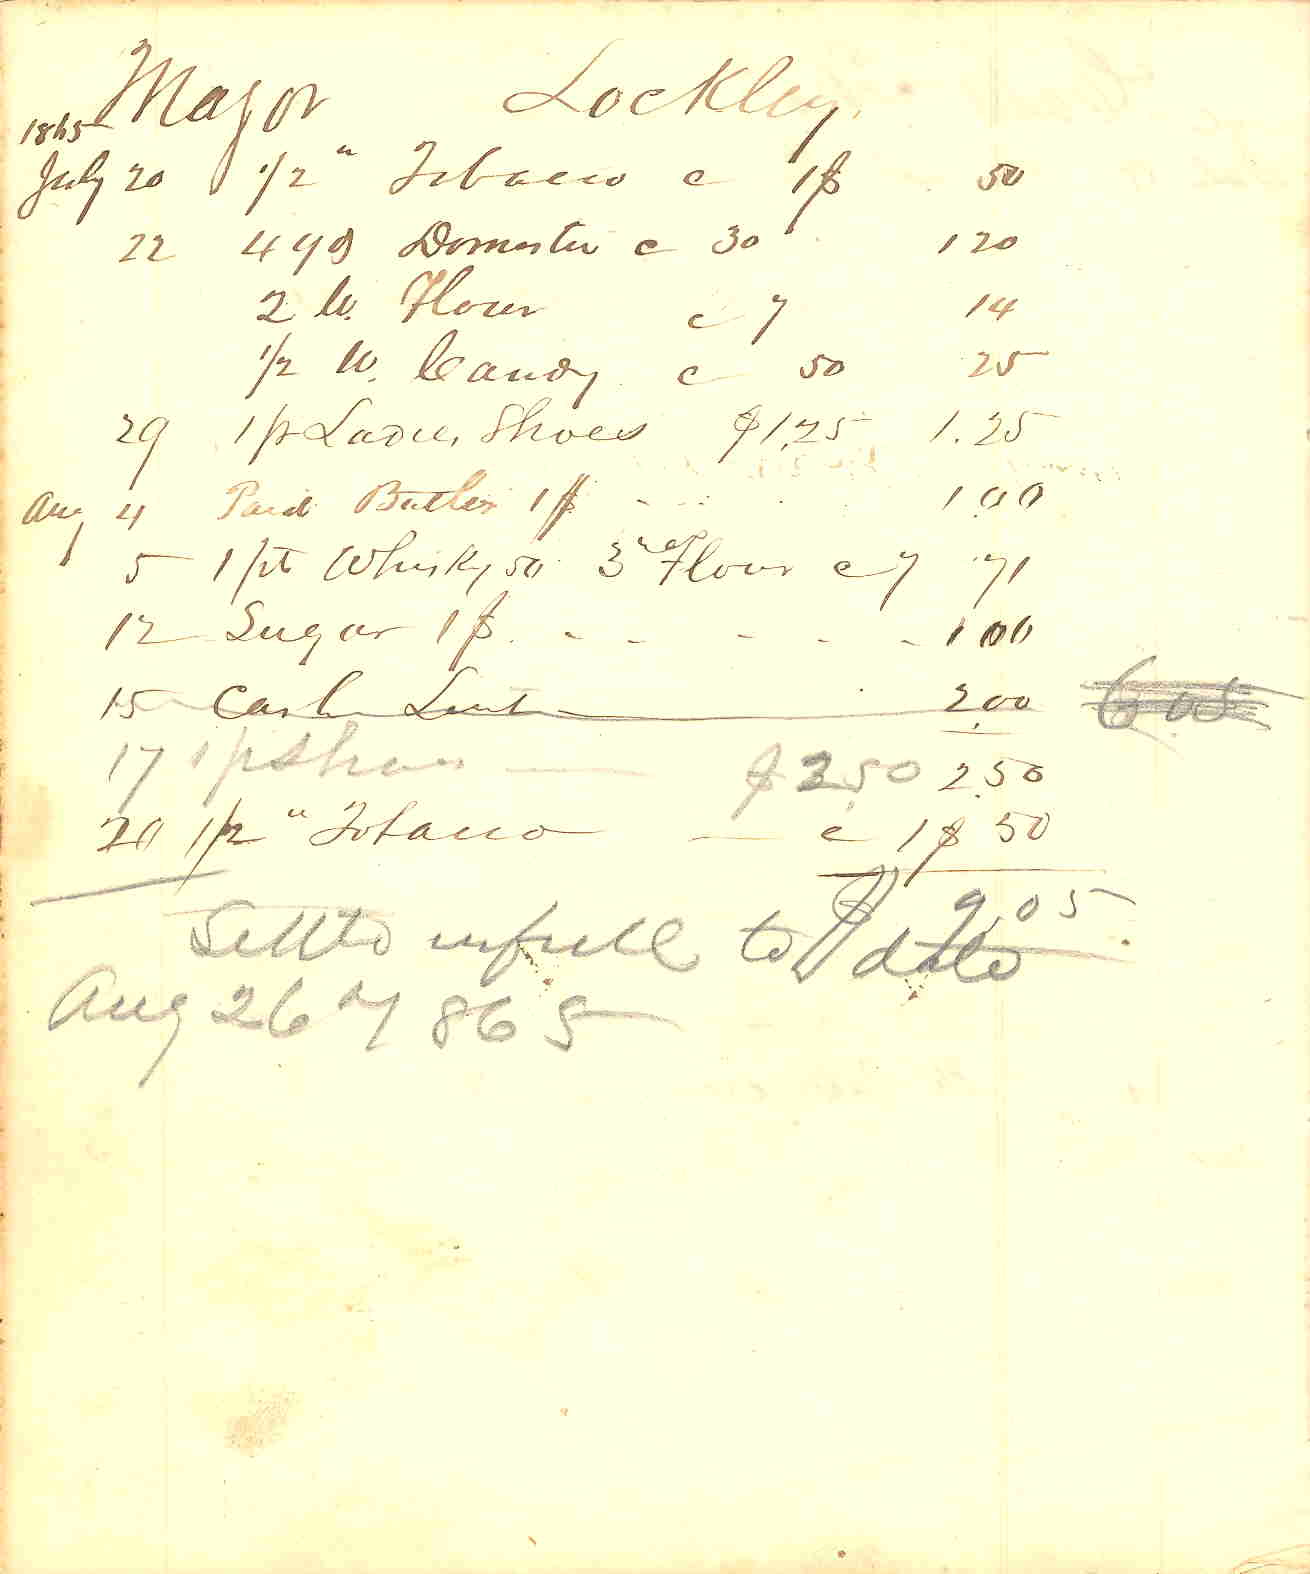 Major Lockley.
1865
July 20 1/2 " Tobacco c 1$ 50
22 4 yd Domestic c 30 1 20
2 lb. Flour c 7 14
1/2 lb. Candy c 50 25
29 1 pr Ladies Shoes $1.25 1.25
Aug 4 Paid Butler 1$ 1.00
5 1 pt Whisky 50 3 " of Flour c 7 71
12 Sugar 1$. - - - - - 1 00
15 Cash Lent 2.00 6 05
17 1 pr Shoes $ 2.50 2.50
20 1/2 " Tobacco c 1$ 50
$ 9.05
Settto in full to date
Aug 26th 1865